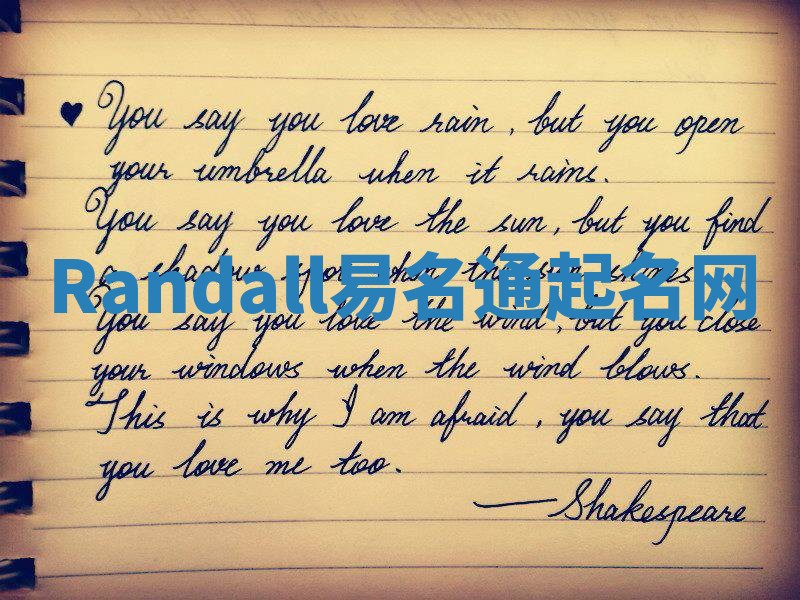 ♥ You say you love rain, but you open
your umbrella when it rains.
You say you love the sun, but you find
a shadow spot when the sun shines.
Randall易名通起名网
You say you love the wind, but you close
your windows when the wind blows.
This is why I am afraid, you say that
you love me too.
—Shakespeare